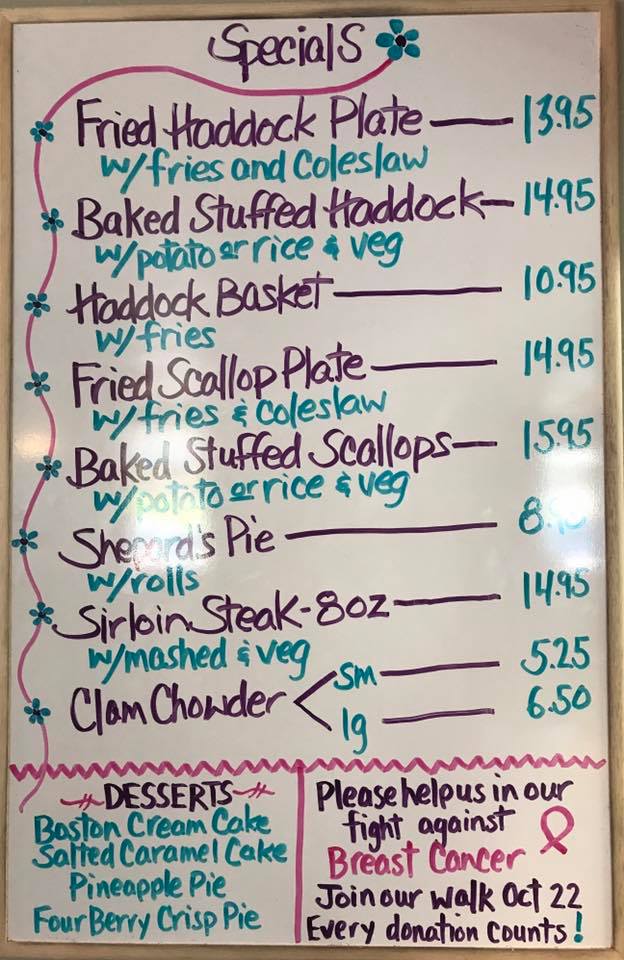 Specials
Fried Haddock Plate 13.95
w/fries and Coleslaw
Baked Stuffed Haddock 14.95
w/potato or rice & veg
Haddock Basket 10.95
w/fries
Fried Scallop Plate 14.95
w/fries & Coleslaw
Baked Stuffed Scallops 15.95
w/potato or rice & veg
Shepard's Pie
w/rolls
Sirloin Steak-8oz 14.95
w/mashed & veg
Clam Chowder
sm 5.25
lg 6.50
DESSERTS
Boston Cream Cake
Salted Caramel Cake
Pineapple Pie
Four Berry Crisp Pie
Please help us in our
fight against
Breast Cancer
Join our walk Oct 22
Every donation counts!